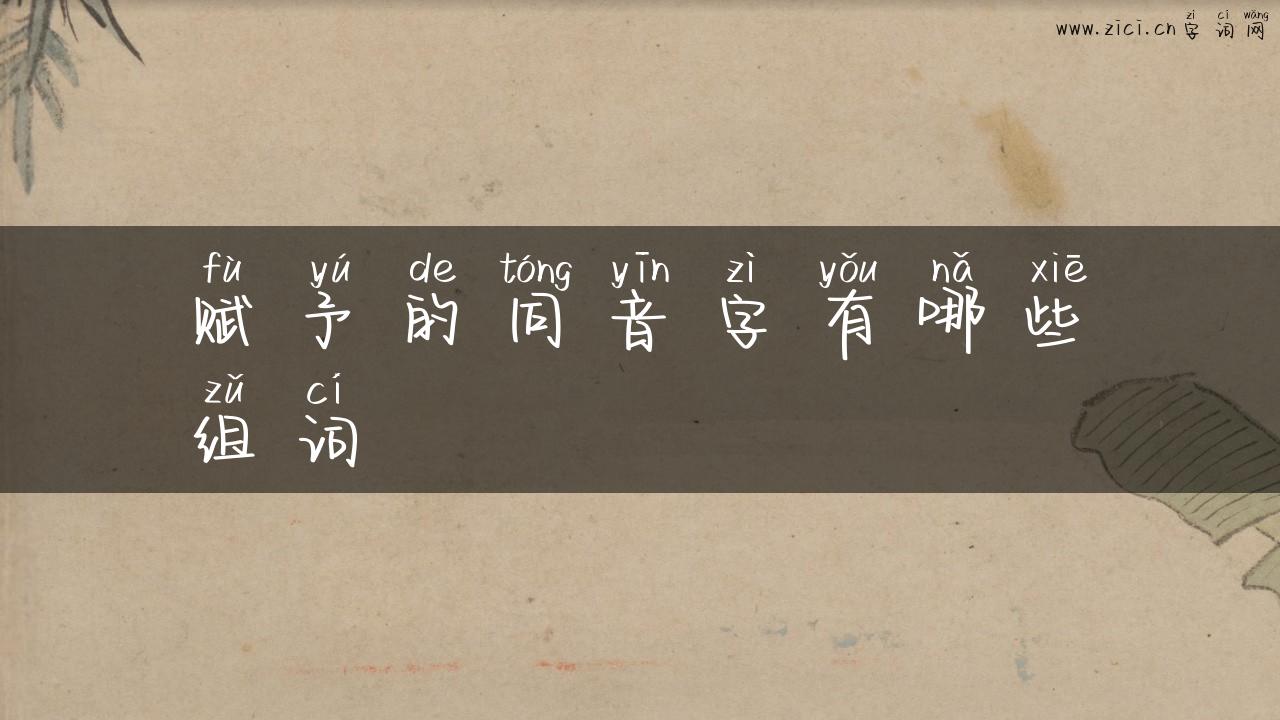 zì cí wǎng
www.zici.cn 字词网
fù yú de tóng yīn zì yǒu nǎ xiē
赋予的同音字有哪些
zǔ cí
组词